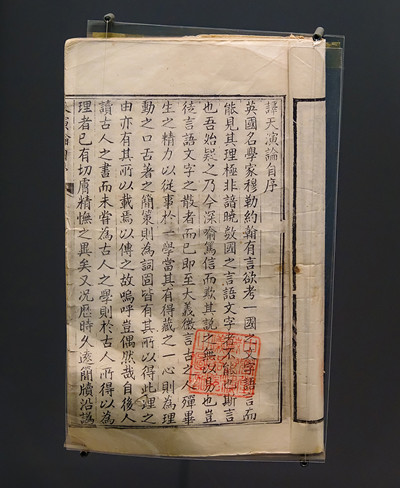 譯天演論自序
英國名學家穆勒約翰有言欲考一國之文字語言而
能見其理極非諳曉數國之言語文字者不能也斯言
也吾始疑之乃今深喻篤信而歎其說之無以易也豈
徒言語文字之散者而已即至大義微言古之人殫畢
生之精力以從事於一學當其有得藏之一心則為理
動之口舌著之簡策則為詞固皆有其所以得此理之
由亦有其所以載焉以傳之故嗚呼豈偶然哉自後人
讀古人之書而未嘗為古人之學則於古人所得以為
理者已有切膚精憮之異矣又況歷時久遠簡牘沿譌